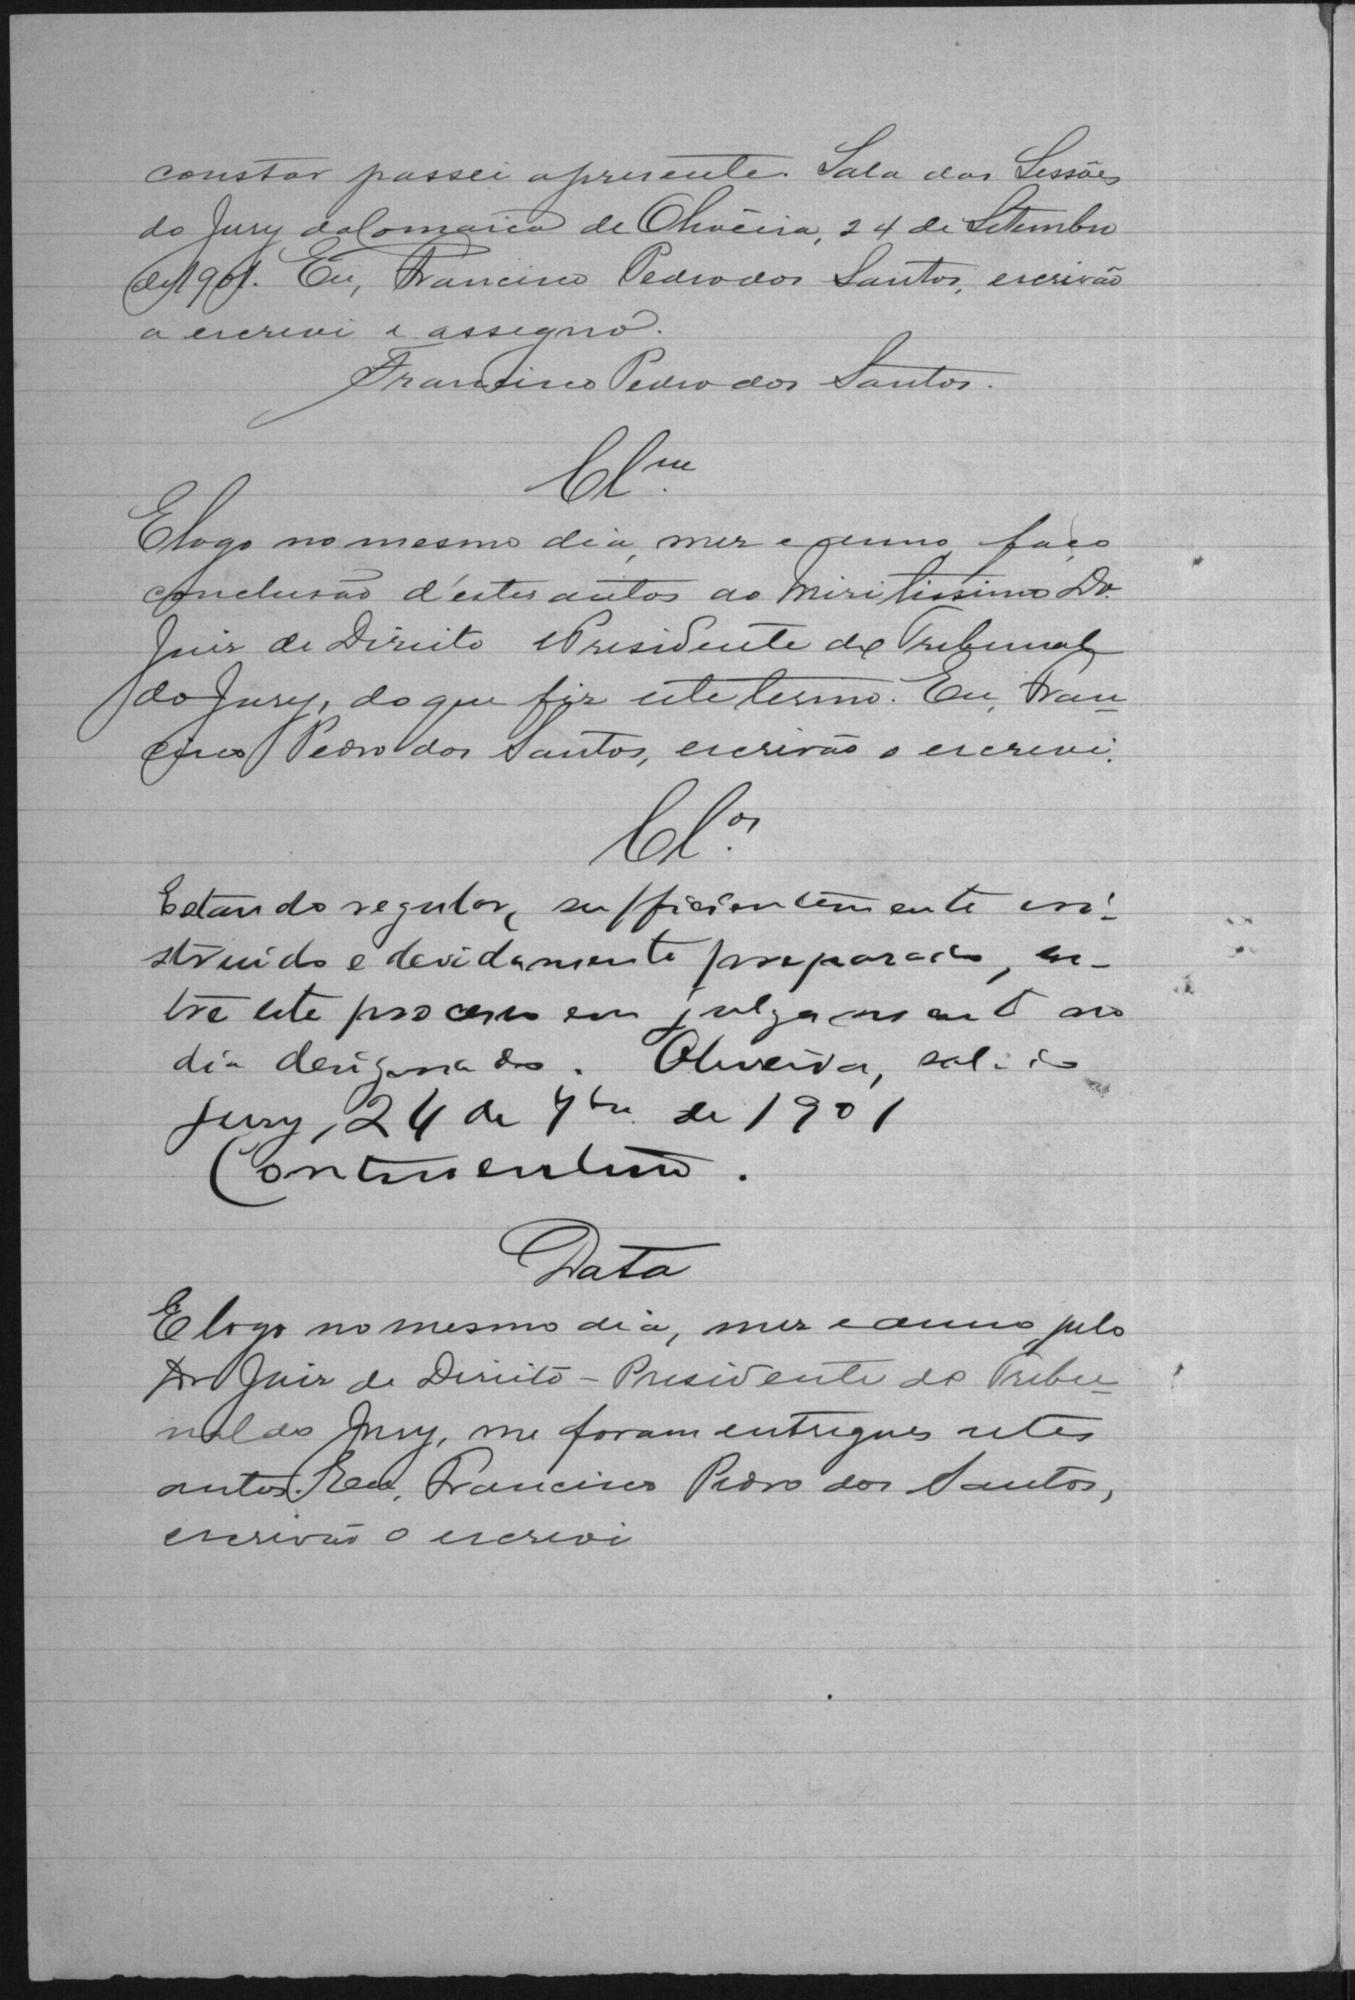 constar passei apresente. Sala das Sessões
do Jury da Comarca de Oliveira, 24 de Setembro
de 1901. Eu, Francisco Pedro dos Santos, escrivão
a escrevi e assegno.
Francisco Pedro dos Santos.
Cl.m
E logo no mesmo dia, mez e anno, faço
conclusão d'estes autos ao Miritissimo Dr.
Juiz de Direito e Presidente do Tribunal
do Jury, do que fiz este termo. Eu, Fran=
cisco Pedro dos Santos, escrivão o escrevi.
Cl.os
Estando regular, sufficientemente ins-
struido e devidamente preparado, en-
tre este processo em julgamento no
dia designado. Oliveira, sala do
Jury, 24 de 7bro de 1901
Data
E logo no mesmo dia, mez e anno pelo
Dr Juiz de Direito - Presidente do Tribu=
nal do Jury, me foram entregues estes
autos. Eu, Francisco Pedro dos Santos,
escrivão o escrevi